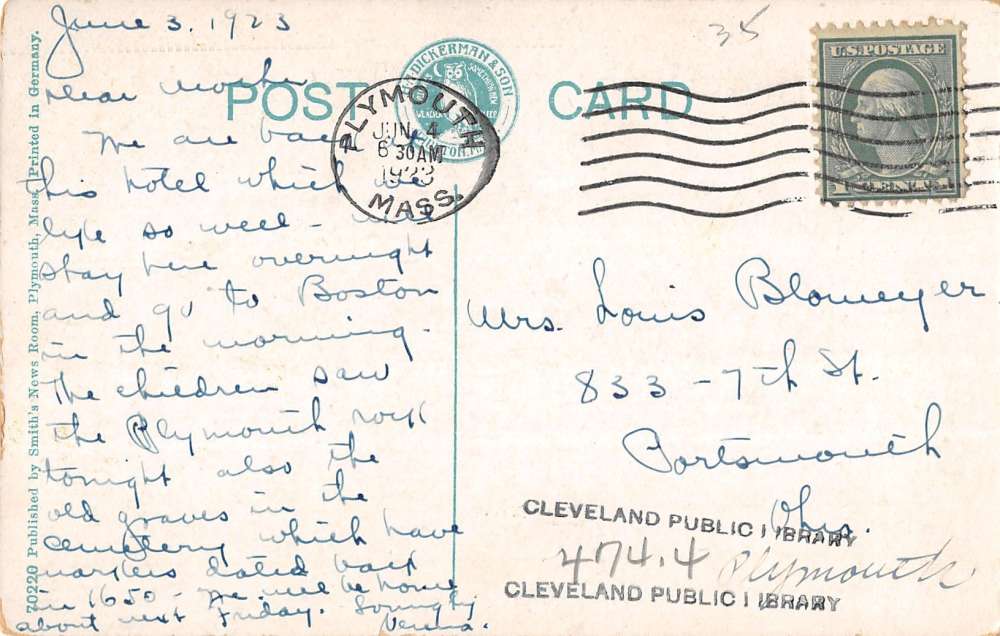 June 3, 1923
Dear mother
We are back
this hotel which we
like so well - we
stay here overnight
and go to Boston
in the morning.
The children saw
the Plymouth rock
tonight also the
old graves in the
cemetery which have
markers dated back
in 1650 - We will be home
about next Friday. Lovingly
Verna.
POST CARD
DICKERMAN & SON
TAUNTON, MASS.
PLYMOUTH
JUN 4
6 30 AM
1923
MASS.
35
U.S. POSTAGE
Mrs. Louis Blomeyer
833 - 7th St.
Portsmouth
Ohio.
CLEVELAND PUBLIC LIBRARY
474.4 Plymouth
CLEVELAND PUBLIC LIBRARY
70220 Published by Smith's News Room, Plymouth, Mass. Printed in Germany.